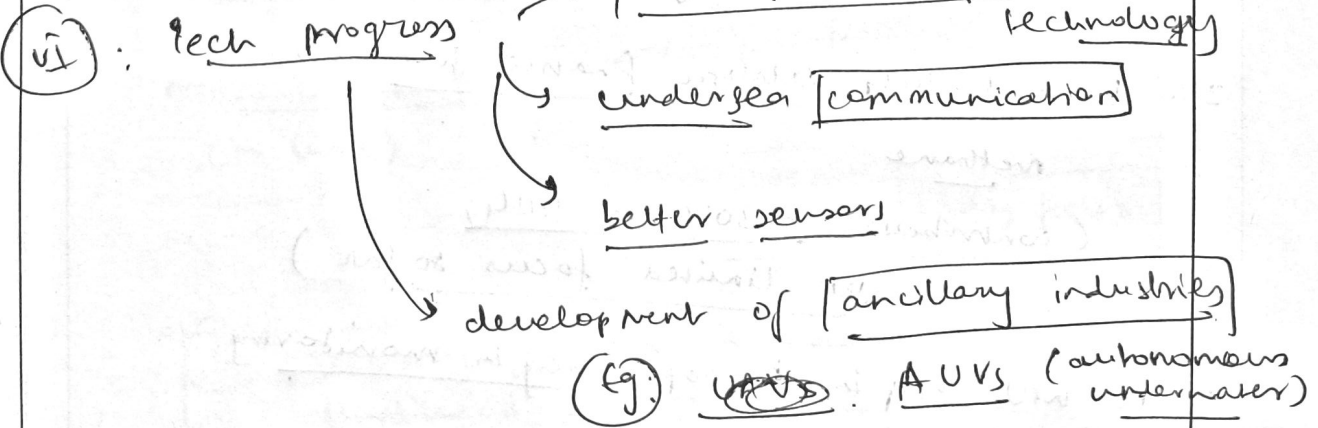 technology
(vi) : Tech progress
undersea communication
better sensors
development of ancillary industries
(Eg:) AUVs (autonomous
underwater)